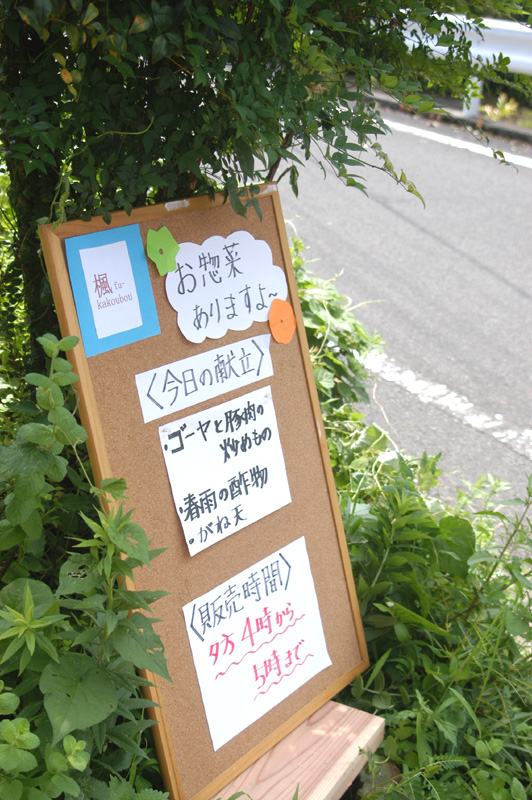 楓 fu-
kakoubou
お惣菜
ありますよ~
〈今日の献立〉
・ゴーヤと豚肉の
炒めもの
・春雨の酢物
・がね天
〈販売時間〉
夕方4時から
5時まで